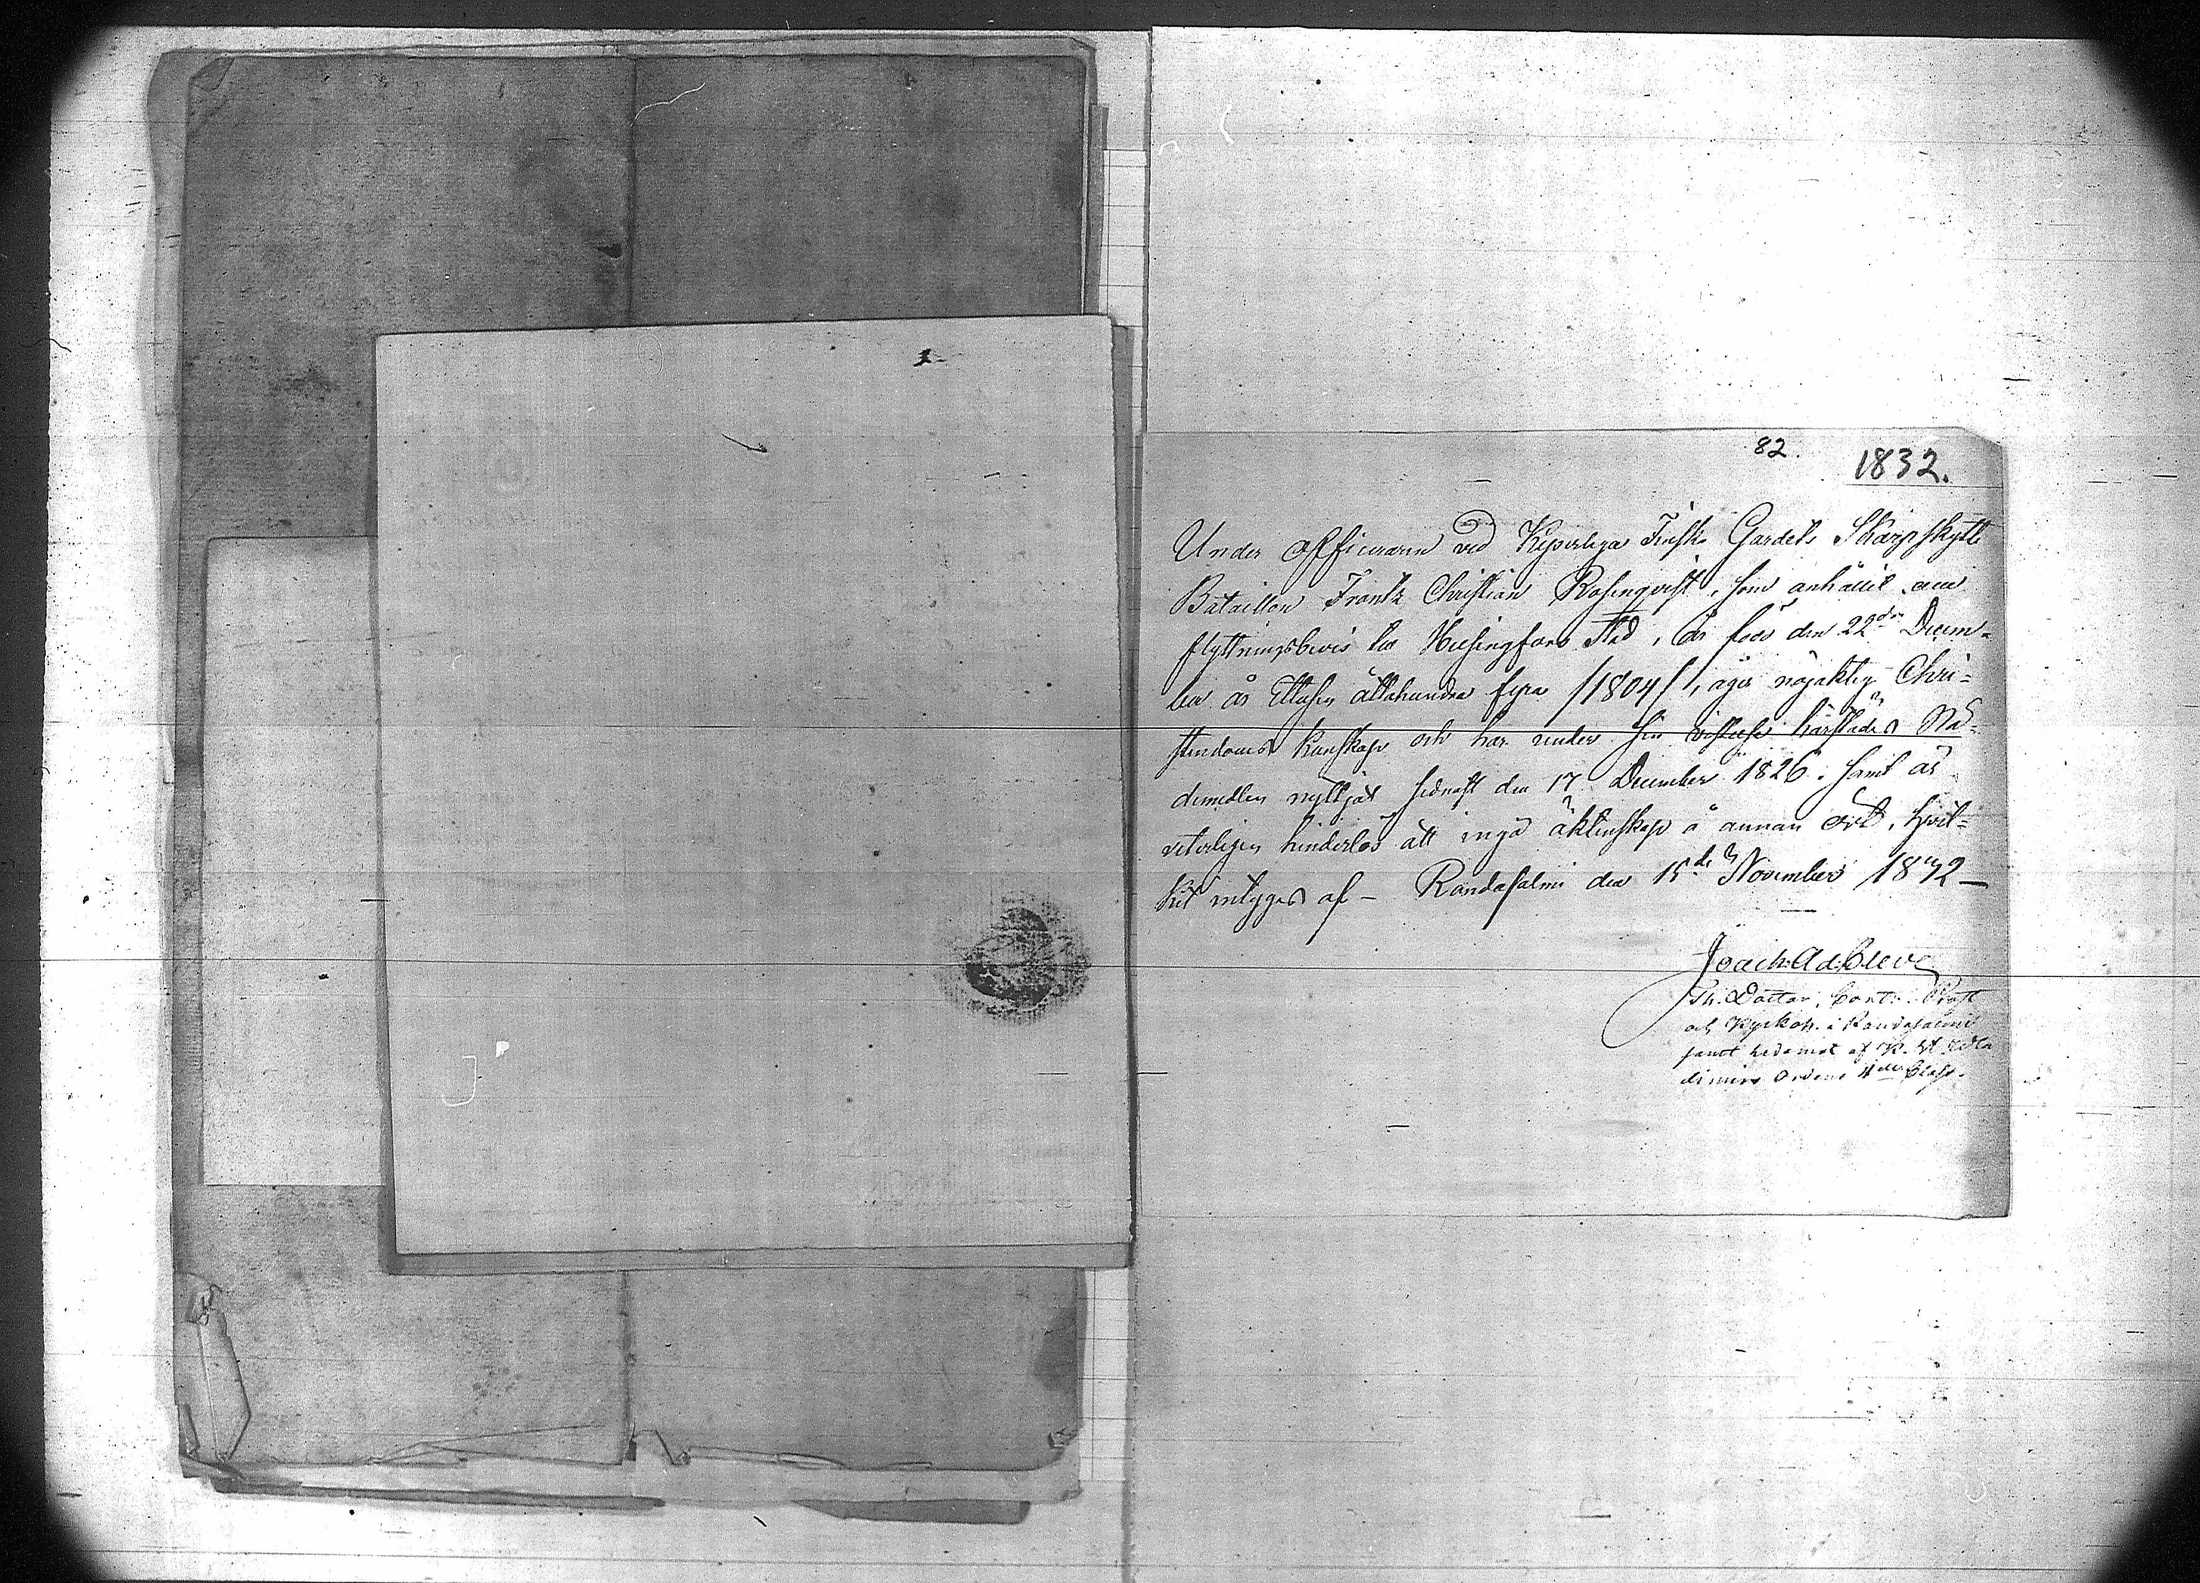 82.
1832.
Under officeraren vid Kejserliga Finska Gardets Skarpskytte
Bataillon Frantz Christian Rosinqvist, som anhållit om
flyttningsbevis till Helsingfors Stad, är född den 22dra Decem=
ber år Ettusen åttahundra fyra /1804/, äger nöjaktig Chri=
stendoms kunskap och har under sin vistelse härstädes Nå=
demedlen nyttjat sednast den 17 December 1826. samt är
veterligen hinderlös att ingå äktenskap å annan ort, hvil=
ket intygas af – Randasalmi den 15de November 1832 –
Joach: Ad: Cleve
Th. Doctor, Cont: Prost
och Kyrkoh. i Randasalmi
samt Ledamot af K. St Wla
dimirs Ordens 4de Class.